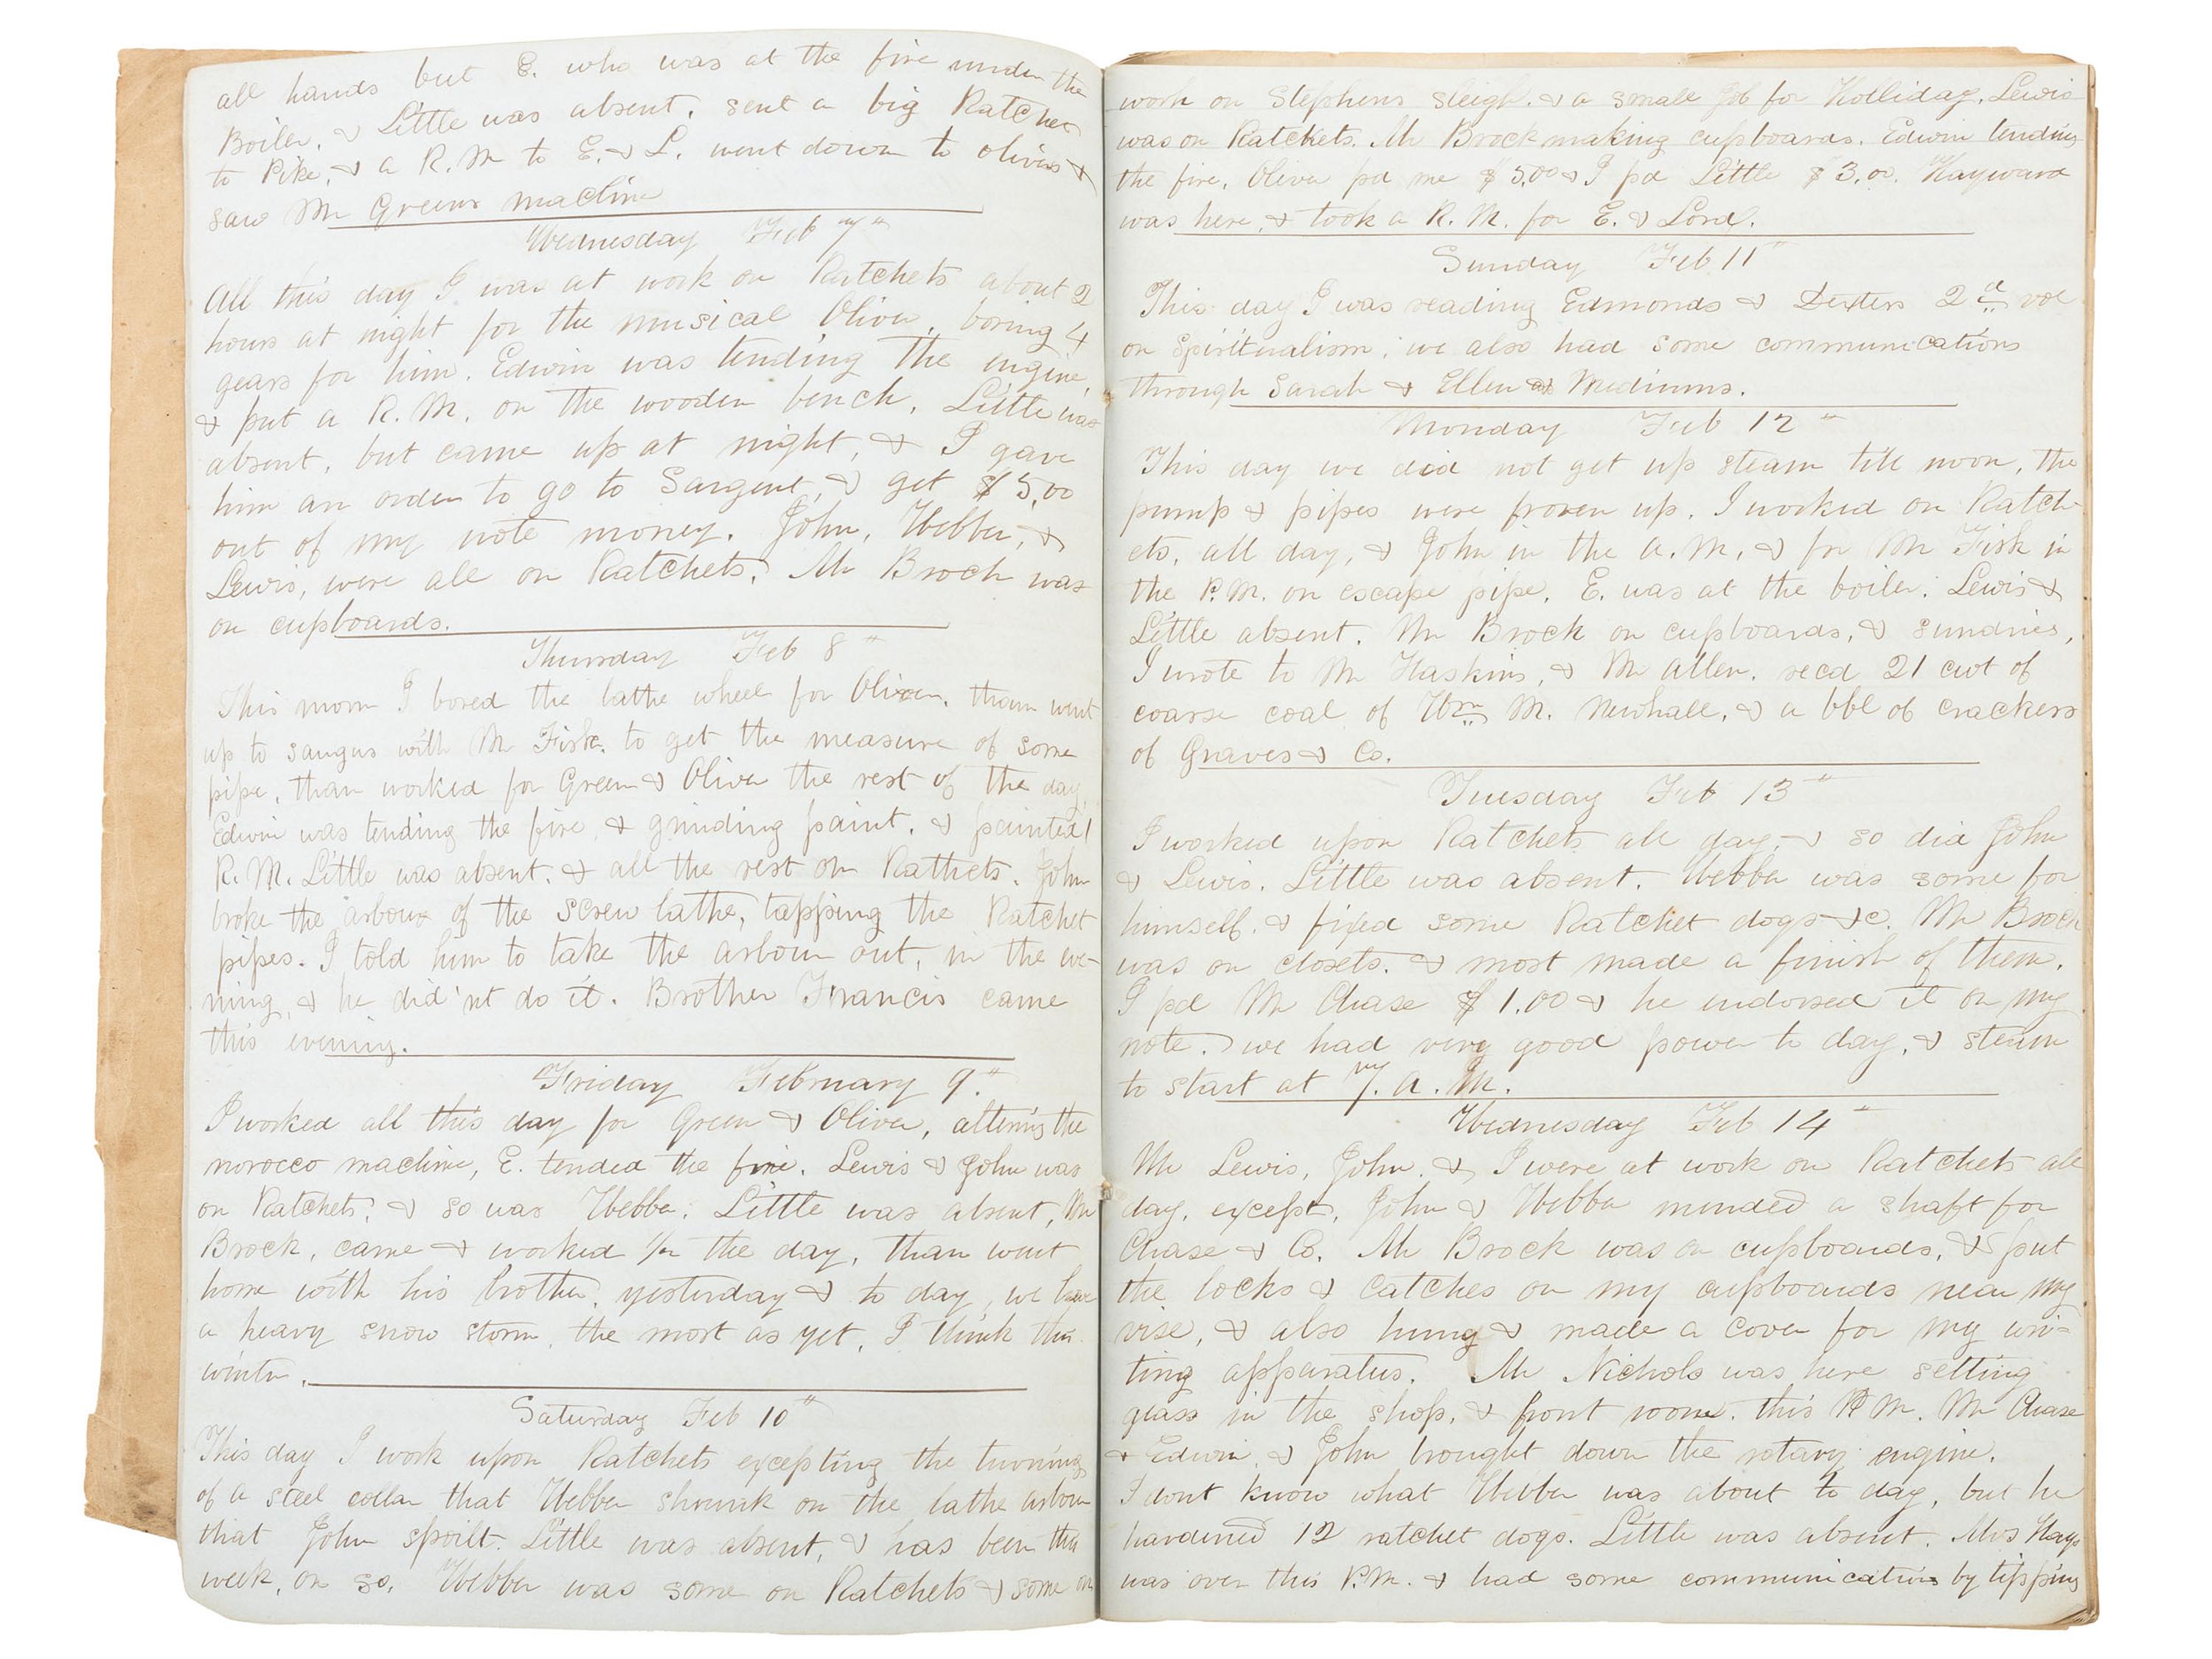 all hands but E. who was at the fire under the
Boiler, & Little was absent. sent a big Ratchet
to Pike, & a R. M to E. & L. went down to olivers &
saw Mr Greens machine
Wednesday Feb 7"
All this day I was at work on Ratchets about 2
hours at night for the musical Oliver, boring 4
gears for him. Edwin was tending the engine,
& put a R. M. on the wooden bench. Little was
absent, but came up at night, & I gave
him an order to go to Sargent, & get $5,00
out of my note money. John, Webber, &
Lewis, were all on Ratchets. Mr Brock was
on cupboards.
Thursday Feb 8"
This morn I bored the lathe wheel for Oliver, than went
up to saugus with Mr Fisk. to get the measure of some
pipe, than worked for Green & Oliver the rest of the day,
Edwin was tending the fire, & grinding paint, & painted 1
R. M. Little was absent. & all the rest on Rathets. John
broke the arbour of the screw lathe, tapping the Ratchet
pipes. I told him to take the arbour out, in the eve-
ning, & he did'nt do it. Brother Francis came
this evening.
Friday February 9."
I worked all this day for Green & Oliver, altering the
morocco machine, E. tended the fire. Lewis & John was
on Ratchets, & so was Webber. Little was absent, Mr
Brock, came & worked 1/2 the day, than went
home with his brother. yesterday & to day, we have
a heavy snow storm, the most as yet, I think this
winter.
Saturday Feb 10"
This day I work upon Ratchets excepting the turning
of a steel collar that Webber shrunk on the lathe arbour
that John spoilt. Little was absent, & has been this
week, or so. Webber was some on Ratchets & some on
work on Stephens sleigh. & a small job for Holliday. Lewis
was on Ratchets. Mr Brock making cupboards. Edwin tending
the fire. Oliver pd me $5,00 & I pd Little $3.00. Hayward
was here, & took a R. M. for E. & Lord.
Sunday Feb 11"
This day I was reading Edmonds & Dexters 2d vol
on Spiritualism; we also had some communications
through Sarah & Ellen as Mediums.
Monday Feb 12"
This day we did not get up steam till noon, the
pump & pipes were frozen up. I worked on Ratch-
ets, all day, & John in the A.M, & for Mr Fisk in
the P.M. on escape pipe. E. was at the boiler. Lewis &
Little absent. Mr Brock on cupboards, & sundries,
I wrote to Mr Haskins, & Mr Allen. recd 21 cwt of
coarse coal of Wm M. Newhall, & a bbl of crackers
of Graves & Co.
Tuesday Feb 13"
I worked upon Ratchets all day, & so did John
& Lewis. Little was absent. Webber was some for
himself. & fixed some Ratchet dogs &c. Mr Brock
was on closets. & most made a finish of them.
I pd Mr Chase $1.00 & he endorsed it on my
note. we had very good power to day, & steam
to start at 7. A. M.
Wednesday Feb 14"
Mr Lewis, John, & I were at work on Ratchets all
day, except, John & Webber mended a shaft for
Chase & Co. Mr Brock was on cupboards, & put
the locks & catches on my cupboards near my
vise, & also hung & made a cover for my wri-
ting apparatus. Mr Nichols was here setting
glass in the shop, & front room. this P.M. Mr Chase
& Edwin, & John brought down the rotary engine.
I dont know what Webber was about to day, but he
hardened 12 ratchet dogs. Little was absent. Mrs Hays
was over this P.M. & had some communications by tipping